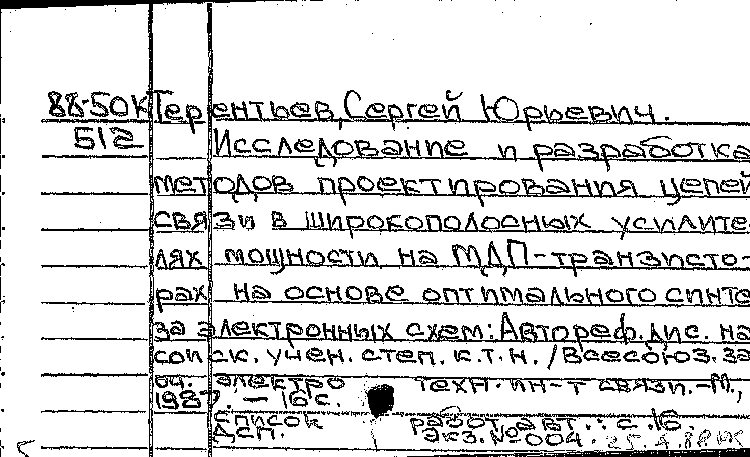 88-50К Терентьев, Сергей Юрьевич.
512 Исследование и разработка
методов проектирования цепей
связи в широкополосных усилите-
лях мощности на МДП-транзисто-
рах на основе оптимального синте
за электронных схем: Автореф. дис. на
соиск. учен. степ. к.т.н. /Всесоюз. за
оч. электро техн. ин-т связи.-М.,
1987. - 16 с.
Список работ авт.: с. 16.
ДСП. Экз. №004.